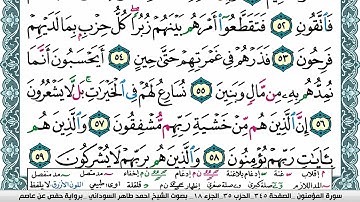 فَٱتَّقُونِ ٥٢ فَتَقَطَّعُوٓا۟ أَمْرَهُم بَيْنَهُمْ زُبُرًا ۖ كُلُّ حِزْبٍۭ بِمَا لَدَيْهِمْ
فَرِحُونَ ٥٣ فَذَرْهُمْ فِى غَمْرَتِهِمْ حَتَّىٰ حِينٍ ٥٤ أَيَحْسَبُونَ أَنَّمَا
نُمِدُّهُم بِهِۦ مِن مَّالٍ وَبَنِينَ ٥٥ نُسَارِعُ لَهُمْ فِى ٱلْخَيْرَٰتِ ۚ بَل لَّا يَشْعُرُونَ
٥٦ إِنَّ ٱلَّذِينَ هُم مِّنْ خَشْيَةِ رَبِّهِم مُّشْفِقُونَ ٥٧ وَٱلَّذِينَ هُم
بِـَٔايَٰتِ رَبِّهِمْ يُؤْمِنُونَ ٥٨ وَٱلَّذِينَ هُم بِرَبِّهِمْ لَا يُشْرِكُونَ ٥٩
سورة المؤمنون . الصفحة ٣٤٥ . الحزب ٣٥ . الجزء ١٨ . بصوت الشيخ أحمد طاهر السوداني . برواية حفص عن عاصم